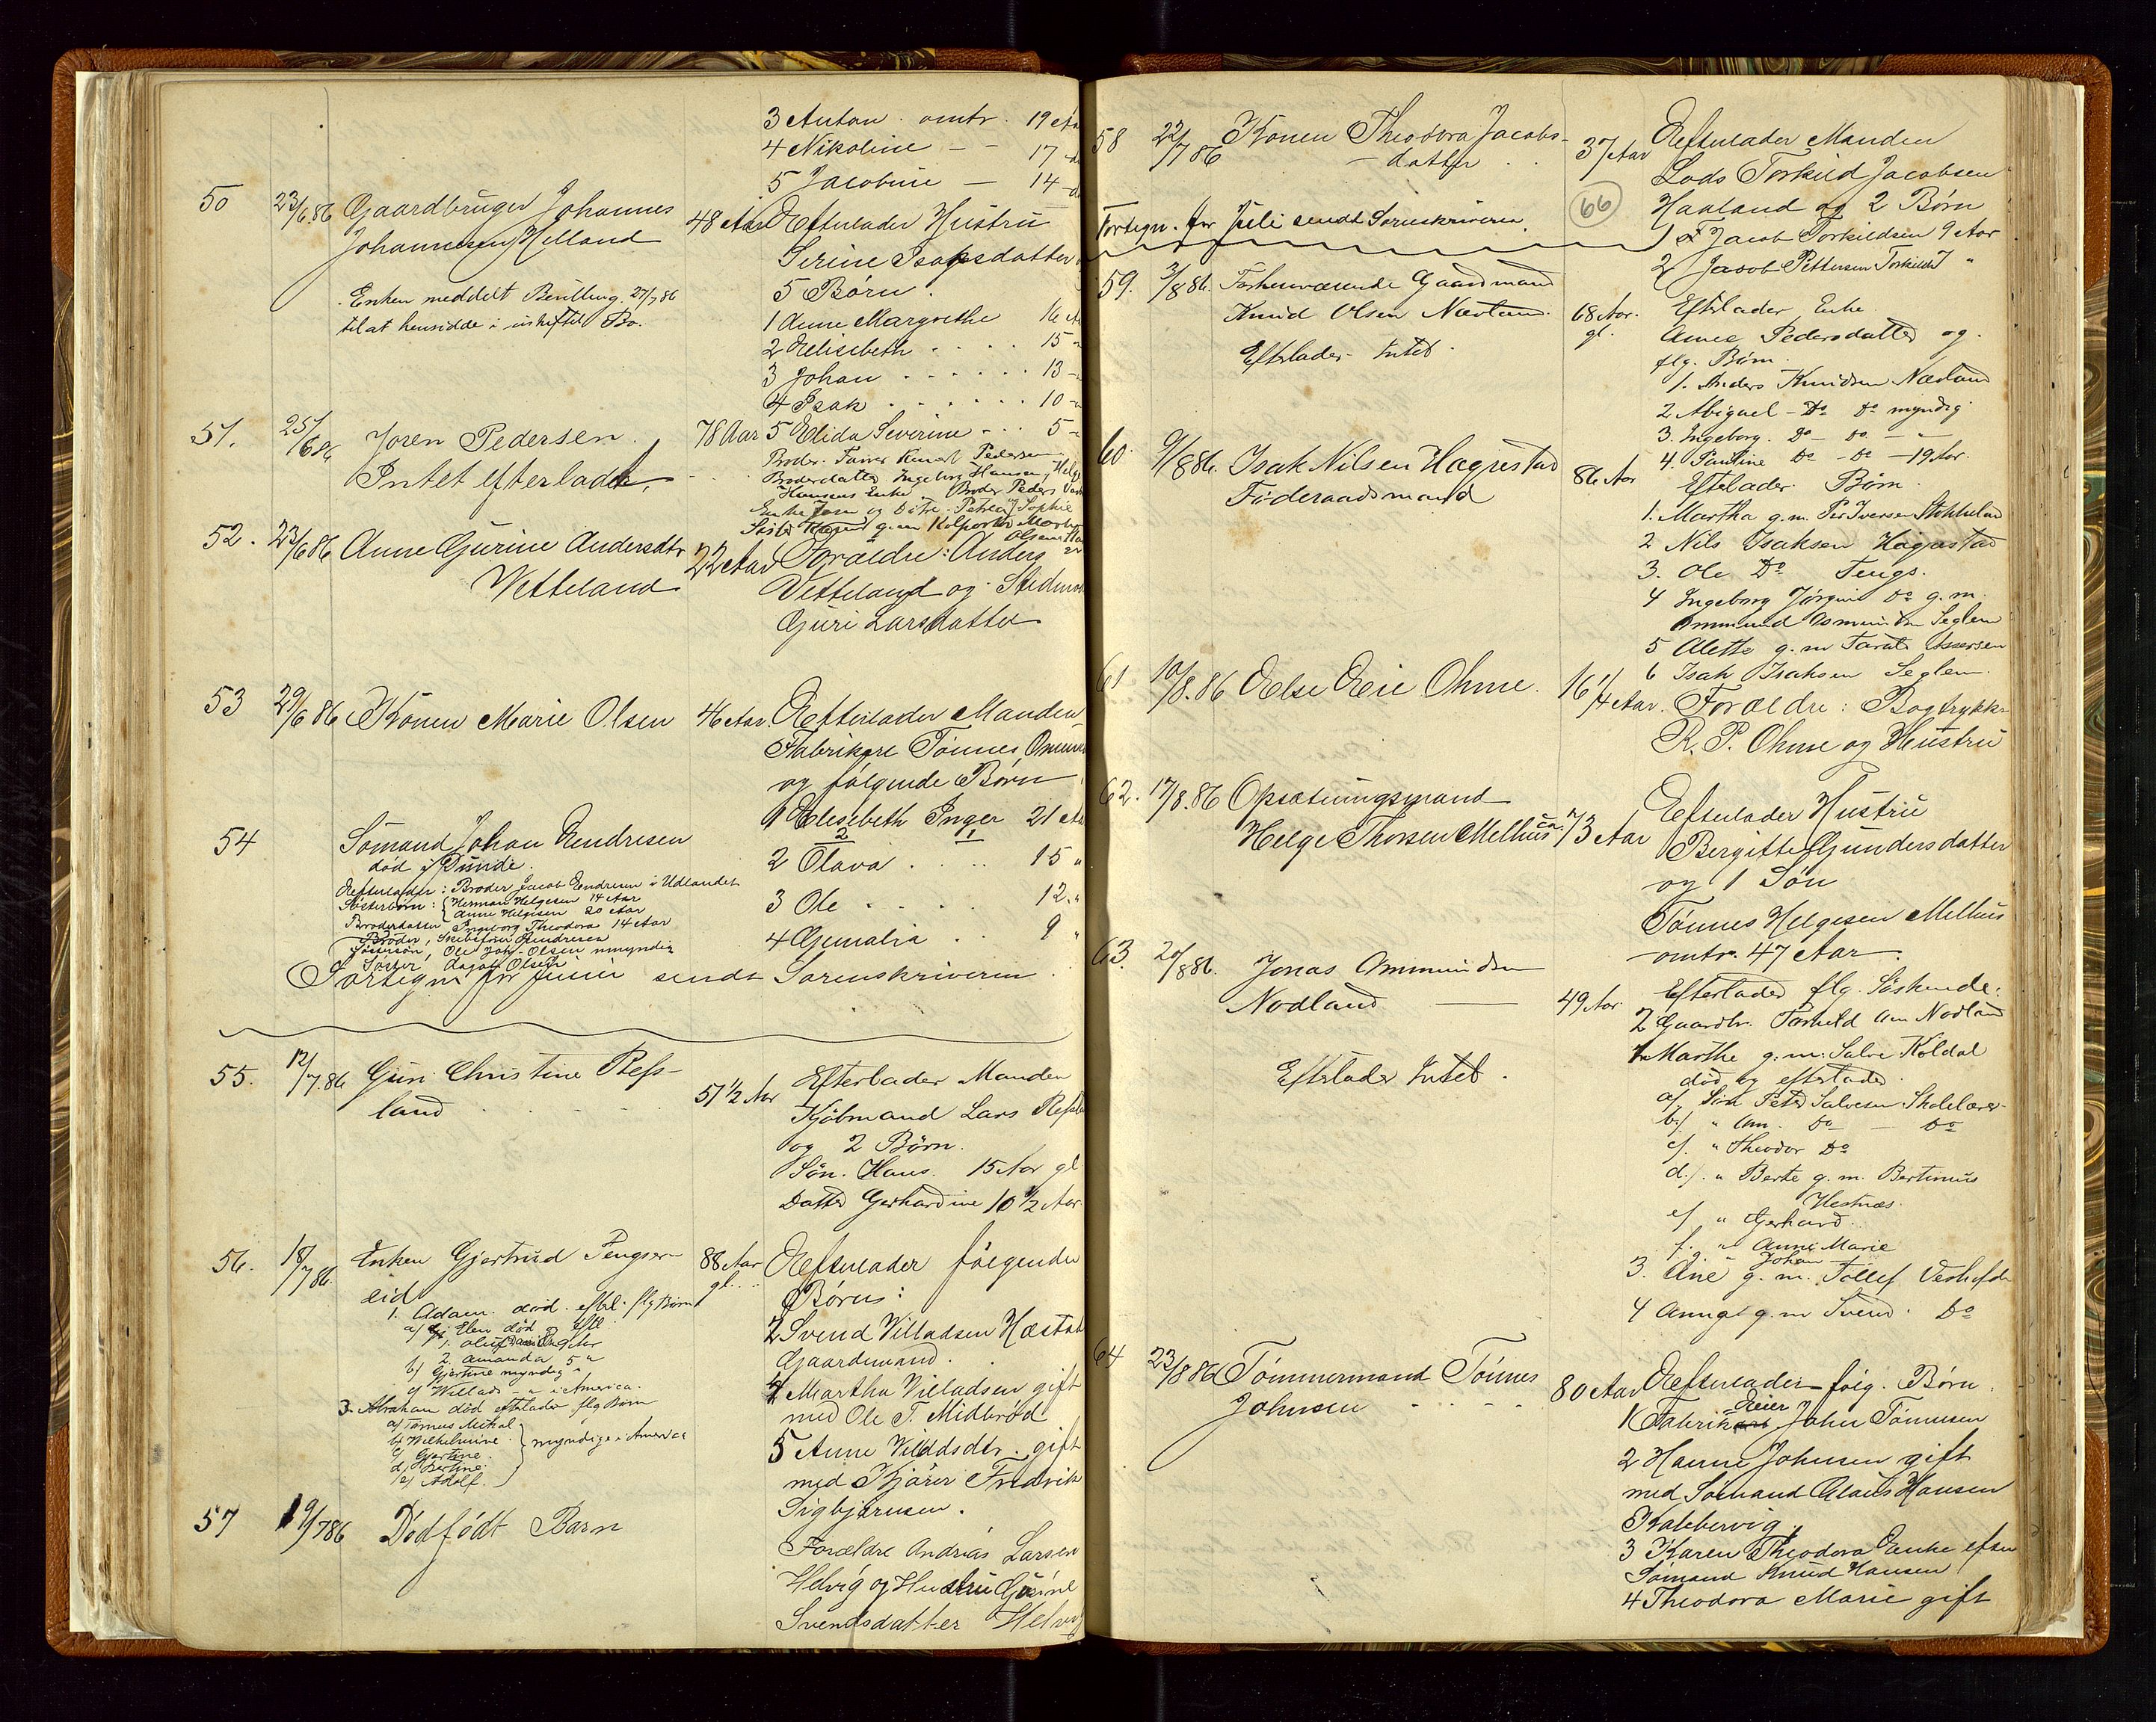 3 Anton . omtr. 19 Aa
4 Nikoline – – 17 – d
5 Jacobine – 14 – d
50 23/6.86 Gaardbruger Johannes
Johannesen Helland
48 Aar Efterlader Hustru
Serine Isaksdatter
5 Børn .
Enken meddelt Bevilling 27/7 86
til at hensidde i uskiftet Bo.
1 Anne Margrethe 16 Aa
2 Elisebeth . . . . 15 –
3 Johan . . . . . . 13 –
4 Isak . . . . . . 10 –
51. 25/6 86 Joren Pedersen .
Intet efterladt.
78 Aar 5 Elida Severine – – – 5 –
Broder. Pedersen
Broderdatter Ingeborg Hansen,
Hansens Enke . Broder Peders
Enke og Døtre . Petrea Sophie
g. m Kolportør
Olsen
52. 23/6 86 Anne Gurine Andersdtr
Vetteland
22 Aar Forældre: Anders
Vetteland og Stedmo
Guri Larsdatter
53 29/6 86 Konen Marie Olsen 46 Aar. Efterlader Manden
Fabrikør Tønnes
og følgende Børn
1 Elisebeth Inger 21 Aa
2 1
2 Olava . . . . 15 "
3 Ole . . . . 12 "
4 Gemalia . . 9 "
54 Sømand Johan Endresen
død i Dundé.
Efterlader: Broder Jacob Endresen i Udlandet
Søsterbørn: { Herman Helgesen 14 Aar
Anne Helgesen 20 Aar
Broderdatter Ingeborg Theodora 14 Aar
Broder, Skibsfører Endresen
Ole Joh. Olsen umyndig
Søster Olsen
Fortegn. for Juni sendt Sorenskriveren .
55. 12/7.86 Guri Christine Refs-
land . . . .
51 1/2 Aar Efterlader Manden
Kjøbmand Lars Refsla
og 2 Børn.
Søn. Hans. 15 Aar gl
Datter Gerhardine 10 1/2 Aar.
56. 18/7 86. Enken Gjertrud Tengser-
eid
88 Aar
gl. . .
Efterlader følgende
Børn:
1. Adam . død . efterl. flg Børn
a/ Elen død
1. Oluf Aar
2. Amanda 5 "
b/ Gjertine myndig
c/ Willads – " i America.
3. Abraham død efterlader flg Børn
a/ Tønnes Mikal
b/ Wilhelmine .
c/ Gjertine.
d/ Bertine.
e/ Adolf.
} myndige i America
2 Svend Villadsen Hæstad
Gaardmand .
4 Martha Villadsen gift
med Ole T. Midbrød
5 Anne Villdsdtr. gift
med Kjører Fredrik
Sigbjørnsen .
57 19/7 86 Dødfødt Barn
Forældre Andrias Larsen
Helvig og Hustru Gurine
Svendsdatter Helvig
58 22/7 86 Konen Theodora Jacobs-
– datter . .
37 Aar Efterlader Manden
Lods Torkild Jacobsen
Haaland og 2 Børn
1 Jacob Torkildsen 9 Aar
2 Jacob Pettersen Torkilds 7 "
66
Fortegn. for Juli sendt Sorenskriveren.
59. 3/8 86. Forhenværende Gaardmand
Knud Olsen Nævland.
Efterlader Intet .
68 Aar.
gl.
Efterlader Enke
Anne Pedersdatter og
flg. Børn .
1. Anders Knudsen Nævland
2 Abigael – Do Do myndig
3. Ingeborg. Do – Do – "
4. Pauline Do – Do – 19 Aar.
60. 9/8 86. Isak Nilsen Hægrestad
Føderaadsmand
86 Aar
Efterlader Børn .
1. Martha g.m. Per Iversen
2 Nils Isaksen Hægrestad
3. Ole Do Tengs.
4 Ingeborg Jørgine Do g. m.
Ommund Seglem
5 Alette g. m Assersen
6 Isak Isaksen Seglem.
61 10/8.86 Else Eeie Ohme. 16 1/4 Aar. Forældre: Bogtrykker
R. P. Ohme og Hustru
62. 17/8.86 Opsætningsmand
Helge Thorsen Melhus
ca. 73 Aar
Efterlader Hustru
Bergitte Gundersdatter
og 1 Søn
Tønnes Helgesen Melhus
omtr. 47 Aar .
63. 20/8 86. Jonas Ommundsen
Nodland –
Efterlader Intet .
49 Aar.
Efterlader flg. Søskende:
2 Gaardbr. Torkild Om Nodland
1 Marthe g. m. Salve Koldal
død og efterlader .
a/ Søn Peder Salvesen Skolelærer
b/ " Om. Do – Do
c/ " Theodor Do
d/ " Berte g. m. Bertinius
Hestnæs.
e/ " Gerhard .
f. " Anne Marie
g " Johan
3. Ane g. m. Tollef
4 Annat g. m Svend . Do
64 23/8 86 Tømmermand Tønnes
Johnsen . . . .
80 Aar Efterlader følg. Børn .
Eeier
1 Fabrik John Tønnesen
2 Hanne Johnsen gift
med Sømand Claus Hansen
Kalhervig.
3 Karen Theodora Enke efter
Sømand Knud Hansen
4 Theodora Marie gift